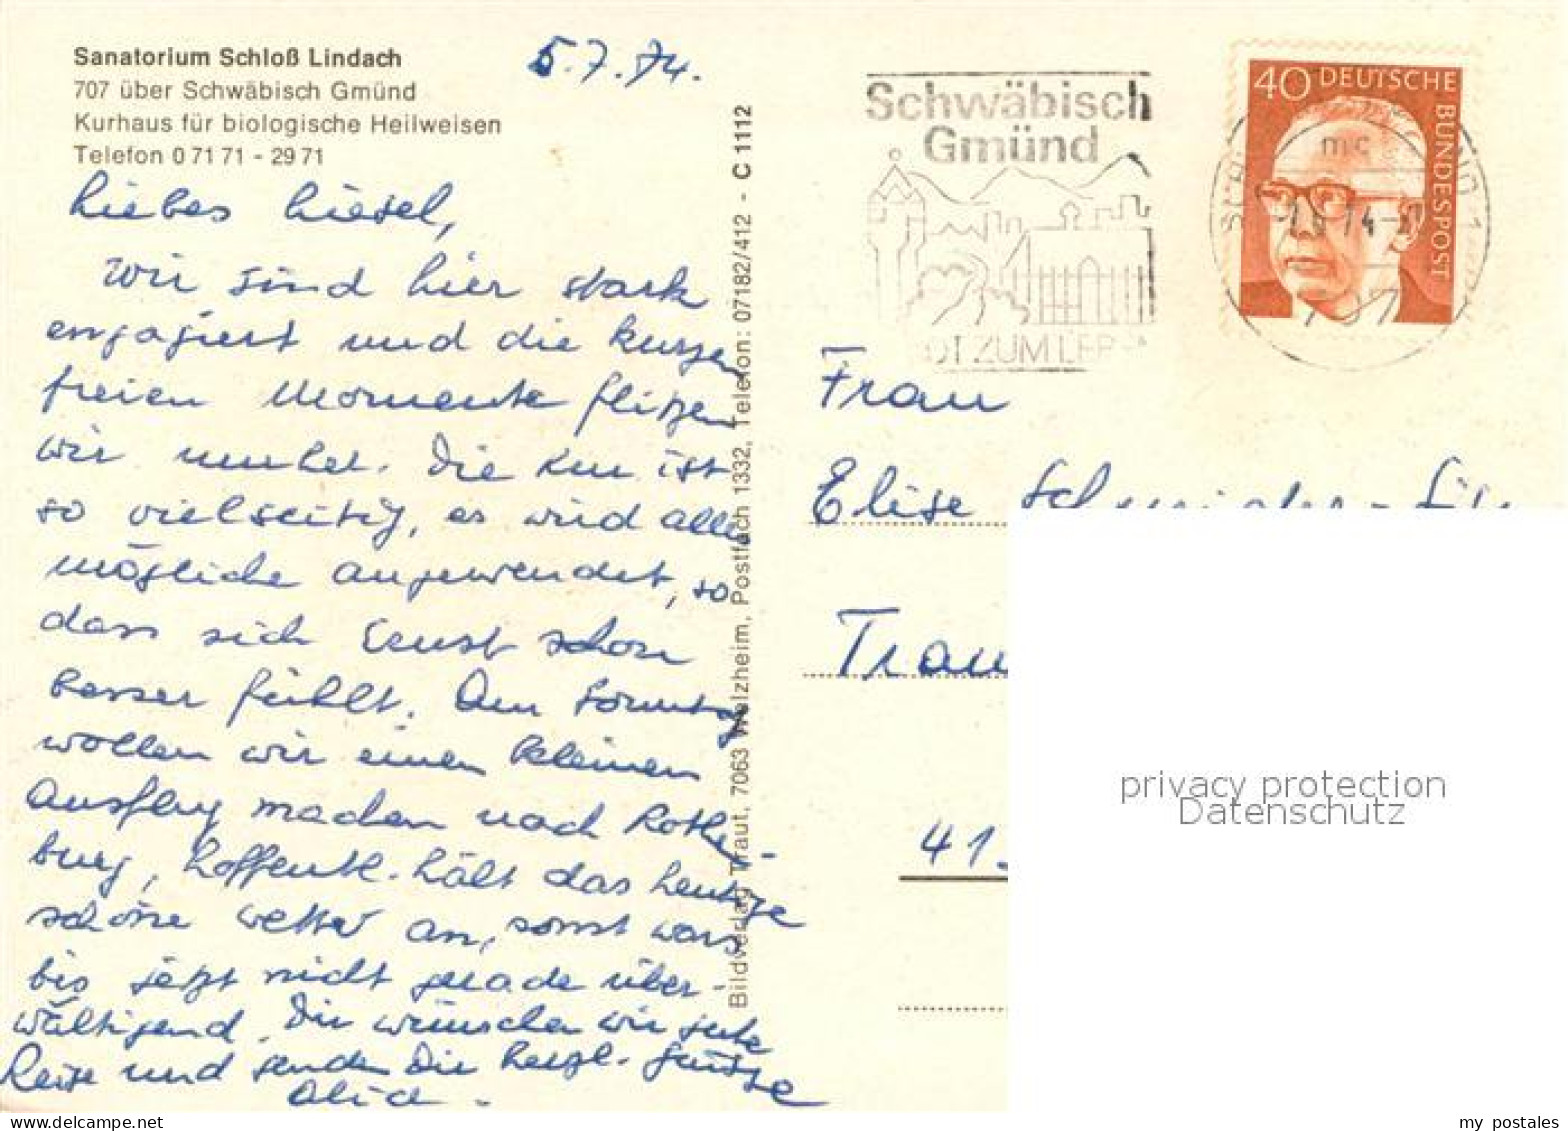 Sanatorium Schloß Lindach
707 über Schwäbisch Gmünd
Kurhaus für biologische Heilweisen
Telefon 0 71 71 - 29 71
5.7.74.
Liebes Liesel,
Wir sind hier stark
engagiert und die kurzen
freien Momente flitzen
wir umher. Die Kur ist
so vielseitig, es wird alles
mögliche angewendet, so
dass sich Ernst schon
besser fühlt. Am Sonntag
wollen wir einen kleinen
Ausflug machen nach Rothen-
burg, hoffentl. hält das heutige
schöne Wetter an, sonst wars
bis jetzt nicht gerade über-
wältigend. Dir wünschen wir gute
Reise und senden Dir herzl. Grüsse
Bildverlag Traut, 7063 Welzheim, Postfach 1332, Telefon: 07182/412 - C 1112
Schwäbisch
Gmünd
ZUM
40 DEUTSCHE
BUNDESPOST
Frau
Elise
Trau
41
privacy protection
Datenschutz
my postales